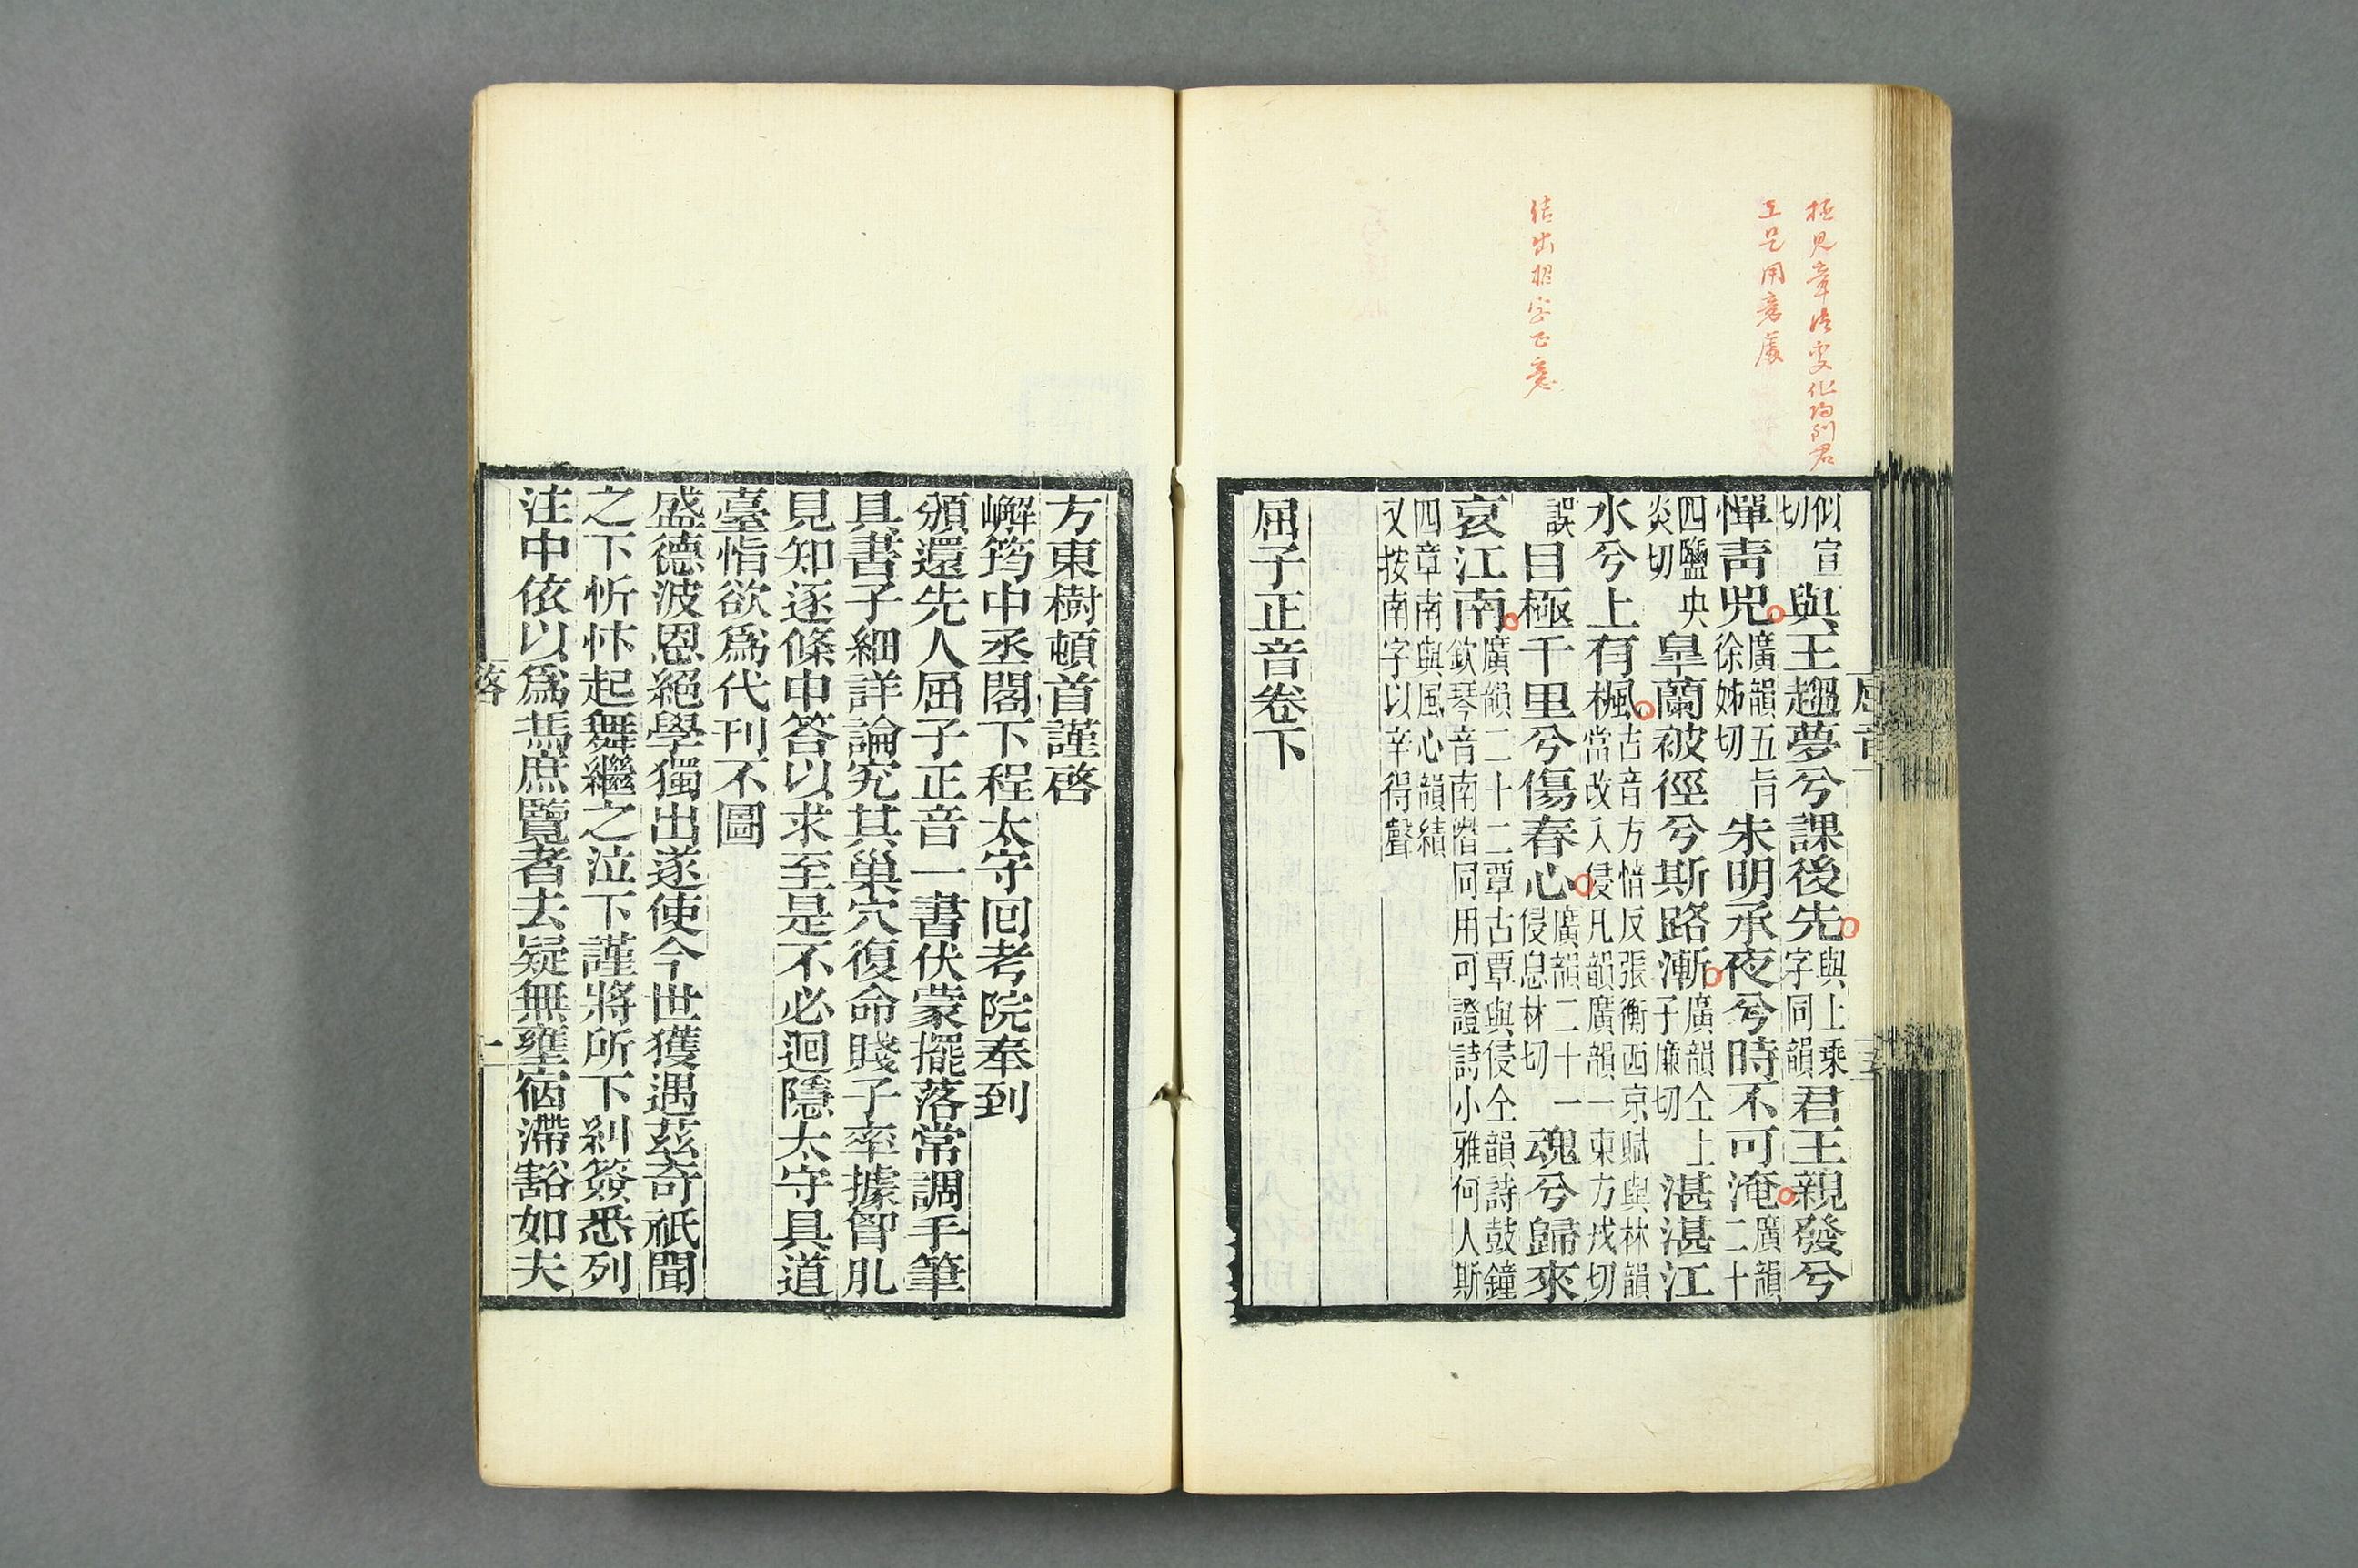 極見章法變化
王是用意處
結出招字正意
似宣
切
與王趨夢兮課後先
與上乘
字同韻
君王親發兮
憚青兕
廣韻五旨
徐姊切
朱明承夜兮時不可淹
廣韻
二十
四鹽央
炎切
皐蘭被徑兮斯路漸
廣韻仝上
子廉切
湛湛江
水兮上有楓
古音方愔反張衡西京賦與林韻
當改入侵凡韻廣韻一東方戎切
誤
目極千里兮傷春心
廣韻二十一
侵息林切
魂兮歸來
哀江南
廣韻二十二覃古覃與侵仝韻詩鼓鐘
欽琴音南僭同用可證詩小雅何人斯
四章南與風心韻績
又按南字以辛得聲
屈子正音卷下
方東樹頓首謹啓
嶰筠中丞閣下程太守回考院奉到
頒還先人屈子正音一書伏蒙擺落常調手筆
具書子細詳論究其巢穴復命賤子率據胷肊
見知逐條申答以求至是不必迴隱太守具道
臺恉欲爲代刊不圖
盛德波恩絕學獨出遂使今世獲遇茲奇祇聞
之下忻忭起舞繼之泣下謹將所下剳簽悉列
注中依以爲馮庶覽者去疑無壅宿滯豁如夫
啓
一